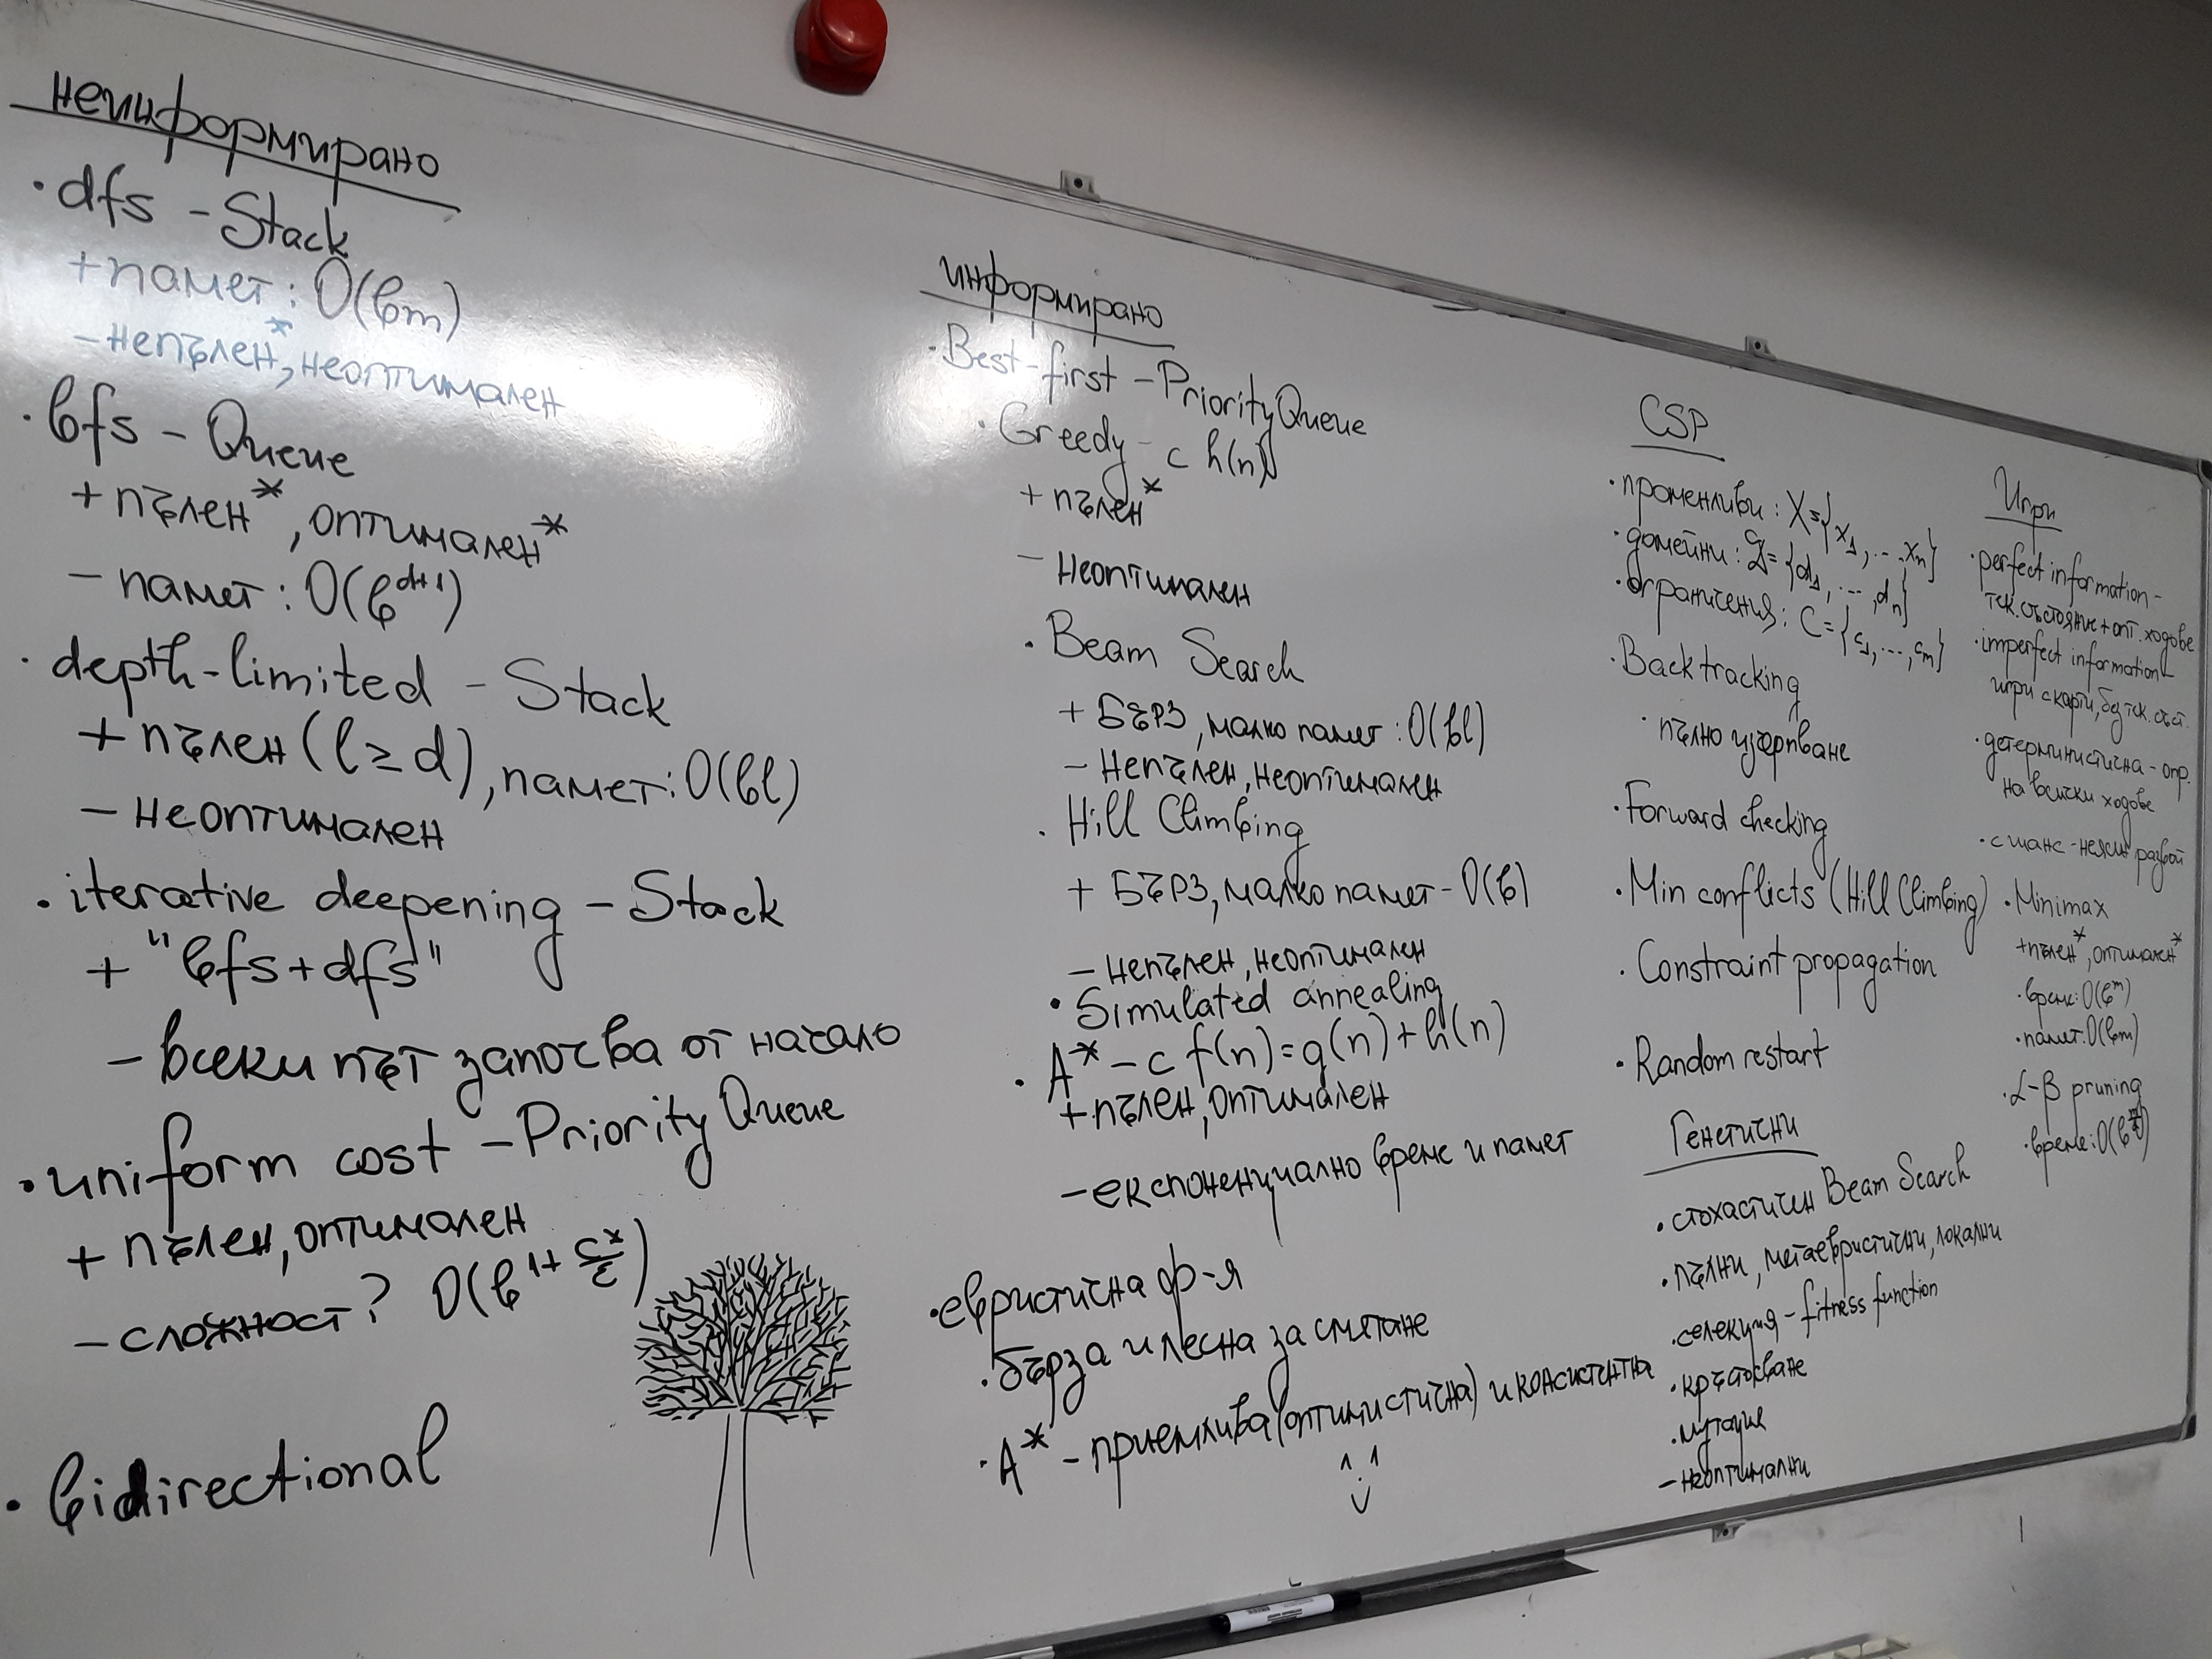 неинформирано
· dfs - Stack
+ памет: O(bm)
- непълен*, неоптимален
· bfs - Queue
+ пълен*, оптимален*
- памет: O(b^{d+1})
· depth-limited - Stack
+ пълен (l ≥ d), памет: O(bl)
- неоптимален
· iterative deepening - Stack
+ "bfs+dfs"
- всеки път започва от начало
· uniform cost - Priority Queue
+ пълен, оптимален
- сложност? O(b^{1+C*/ε})
· bidirectional
информирано
· Best-first - PriorityQueue
· Greedy - с h(n)
+ пълен*
- неоптимален
· Beam Search
+ бърз, малко памет: O(bl)
- непълен, неоптимален
· Hill Climbing
+ бърз, малко памет - O(b)
- непълен, неоптимален
· Simulated annealing
· A* - с f(n) = g(n) + h(n)
+ пълен, оптимален
- експоненциално време и памет
· евристична ф-я
· бърза и лесна за смятане
· A* - приемлива (оптимистична) и консистентна
CSP
· променливи: X = {x₁, ..., xₙ}
· домейни: D = {d₁, ..., dₙ}
· ограничения: C = {c₁, ..., cₘ}
· Backtracking
· пълно изчерпване
· Forward checking
· Min conflicts (Hill Climbing)
· Constraint propagation
· Random restart
Генетични
· стохастичен Beam Search
· пълни, метаевристични, локални
· селекция - fitness function
· кръстосване
· мутация
- неоптимални
Игри
· perfect information -
тек. състояние + опт. ходове
· imperfect information -
игри с карти, без тек. съст.
· детерминистична - опр.
на всички ходове
· с шанс - неясен развой
· Minimax
+ пълен*, оптимален*
· време: O(b^m)
· памет: O(bm)
· α-β pruning
· време: O(b^{m/2})